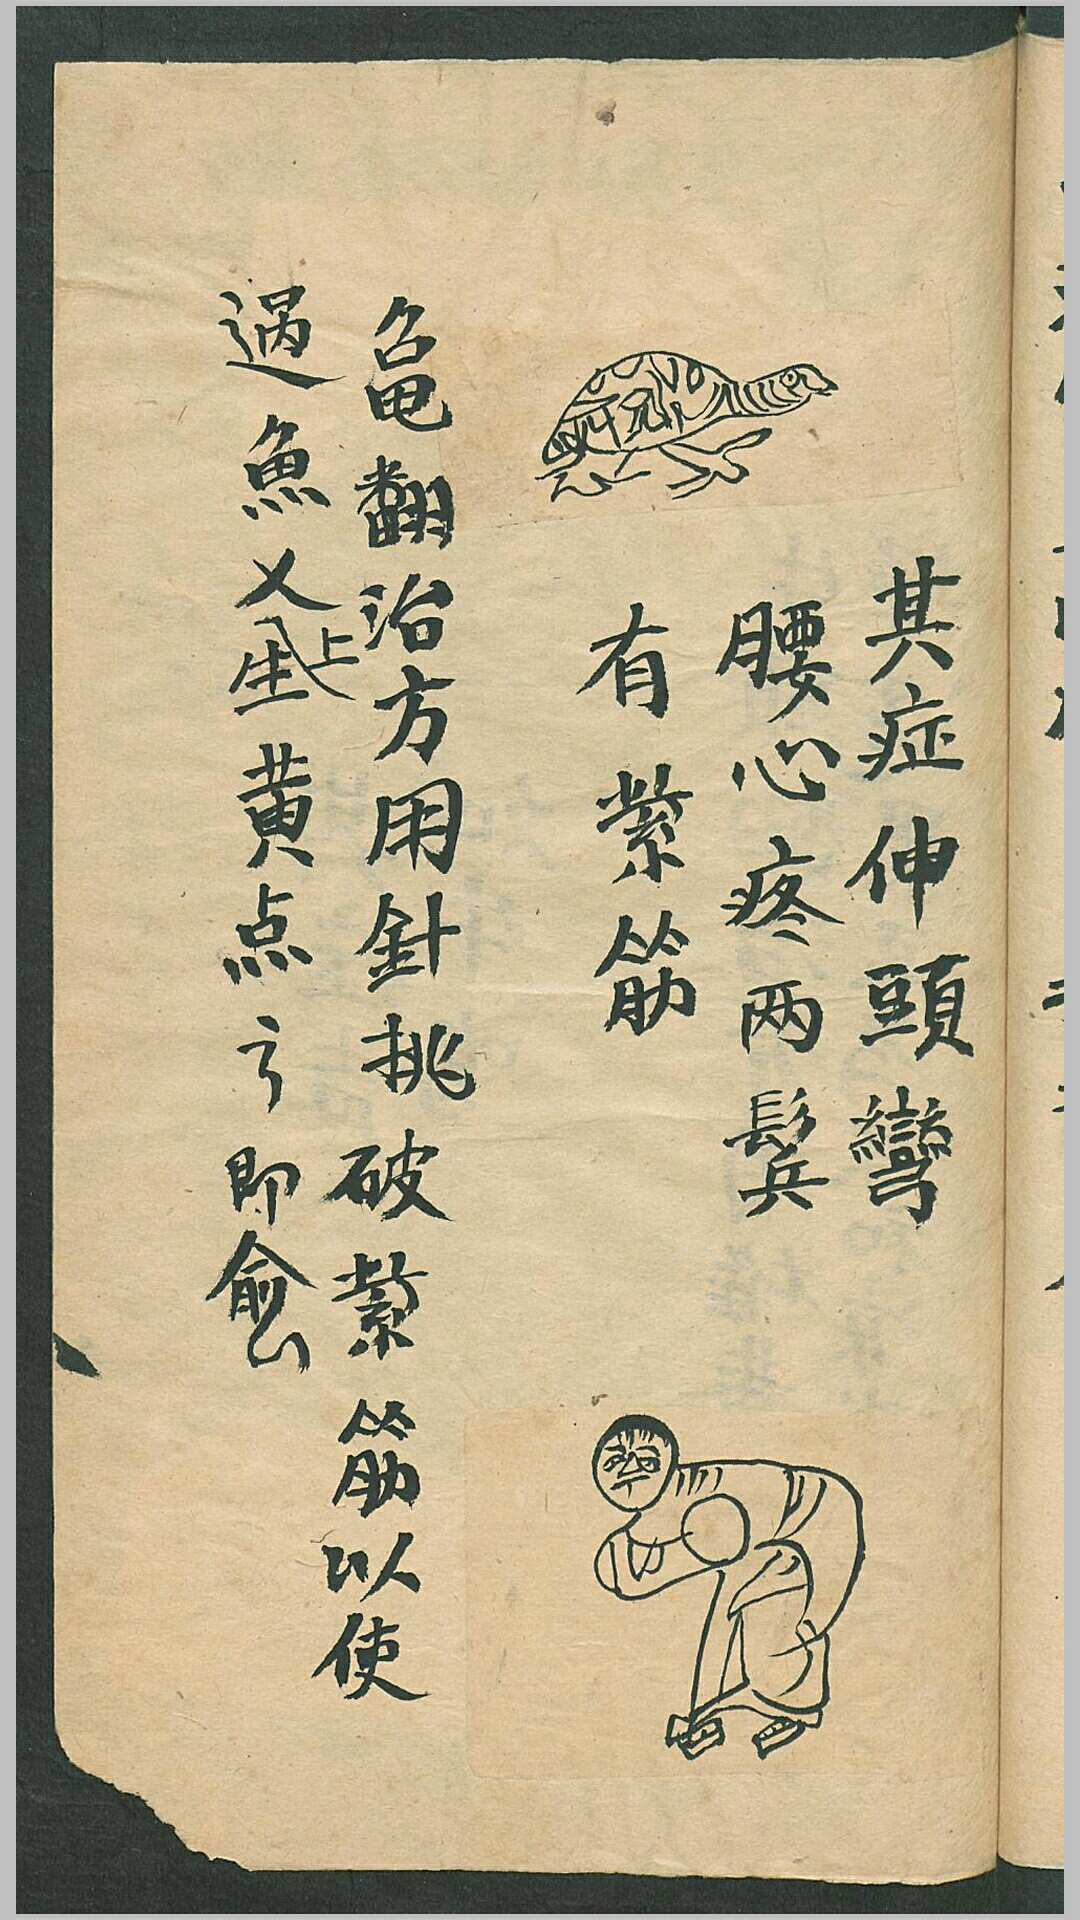 其症伸頭彎
腰心疼两鬓
有紫筋
亀翻治方用針挑破紫筋以使
過魚乂上黄点即愈